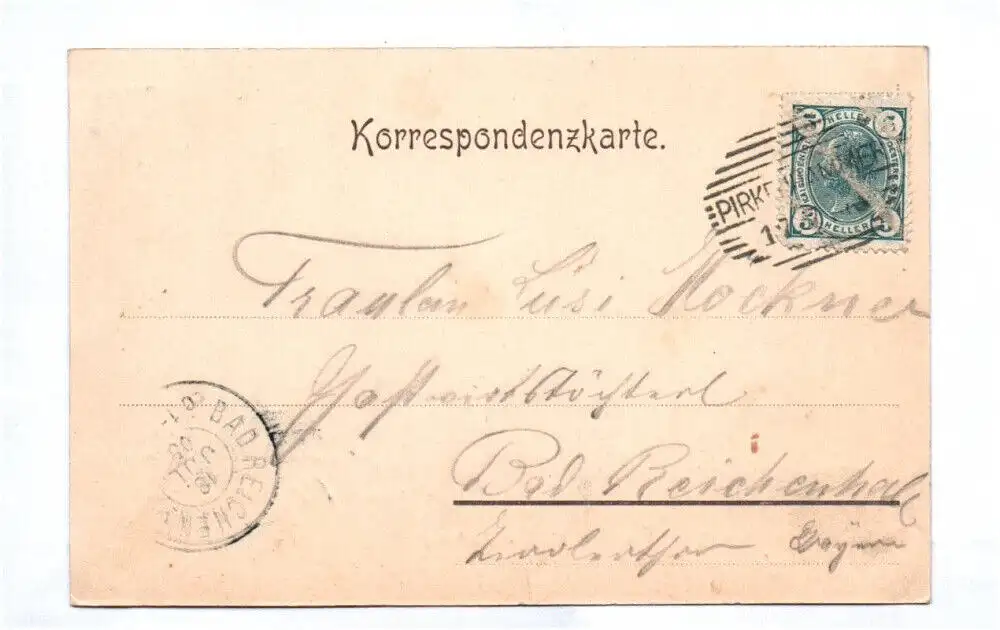 Korrespondenzkarte.
3 HELLER 3
PIRKE
3 HELLER 3
Fräulein Lusi Mockner
Gastwirtstöchterl
Bad Reichenhal
Bayern
BAD REICHENHA
JUL